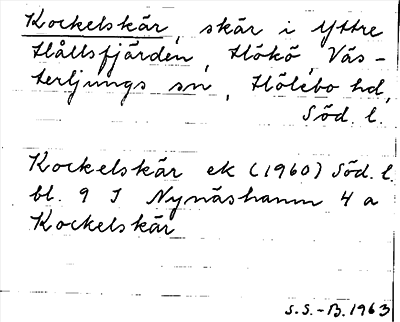 Kockelskär, skär i Yttre
Hållsfjärden, Hökö, Väs-
terljungs sn, Hölebo hd,
Söd. l.
Kockelskär ek (1960) Söd. l.
bl. 9 I Nynäshamn 4 a
Kockelskär
S.S.-B. 1963